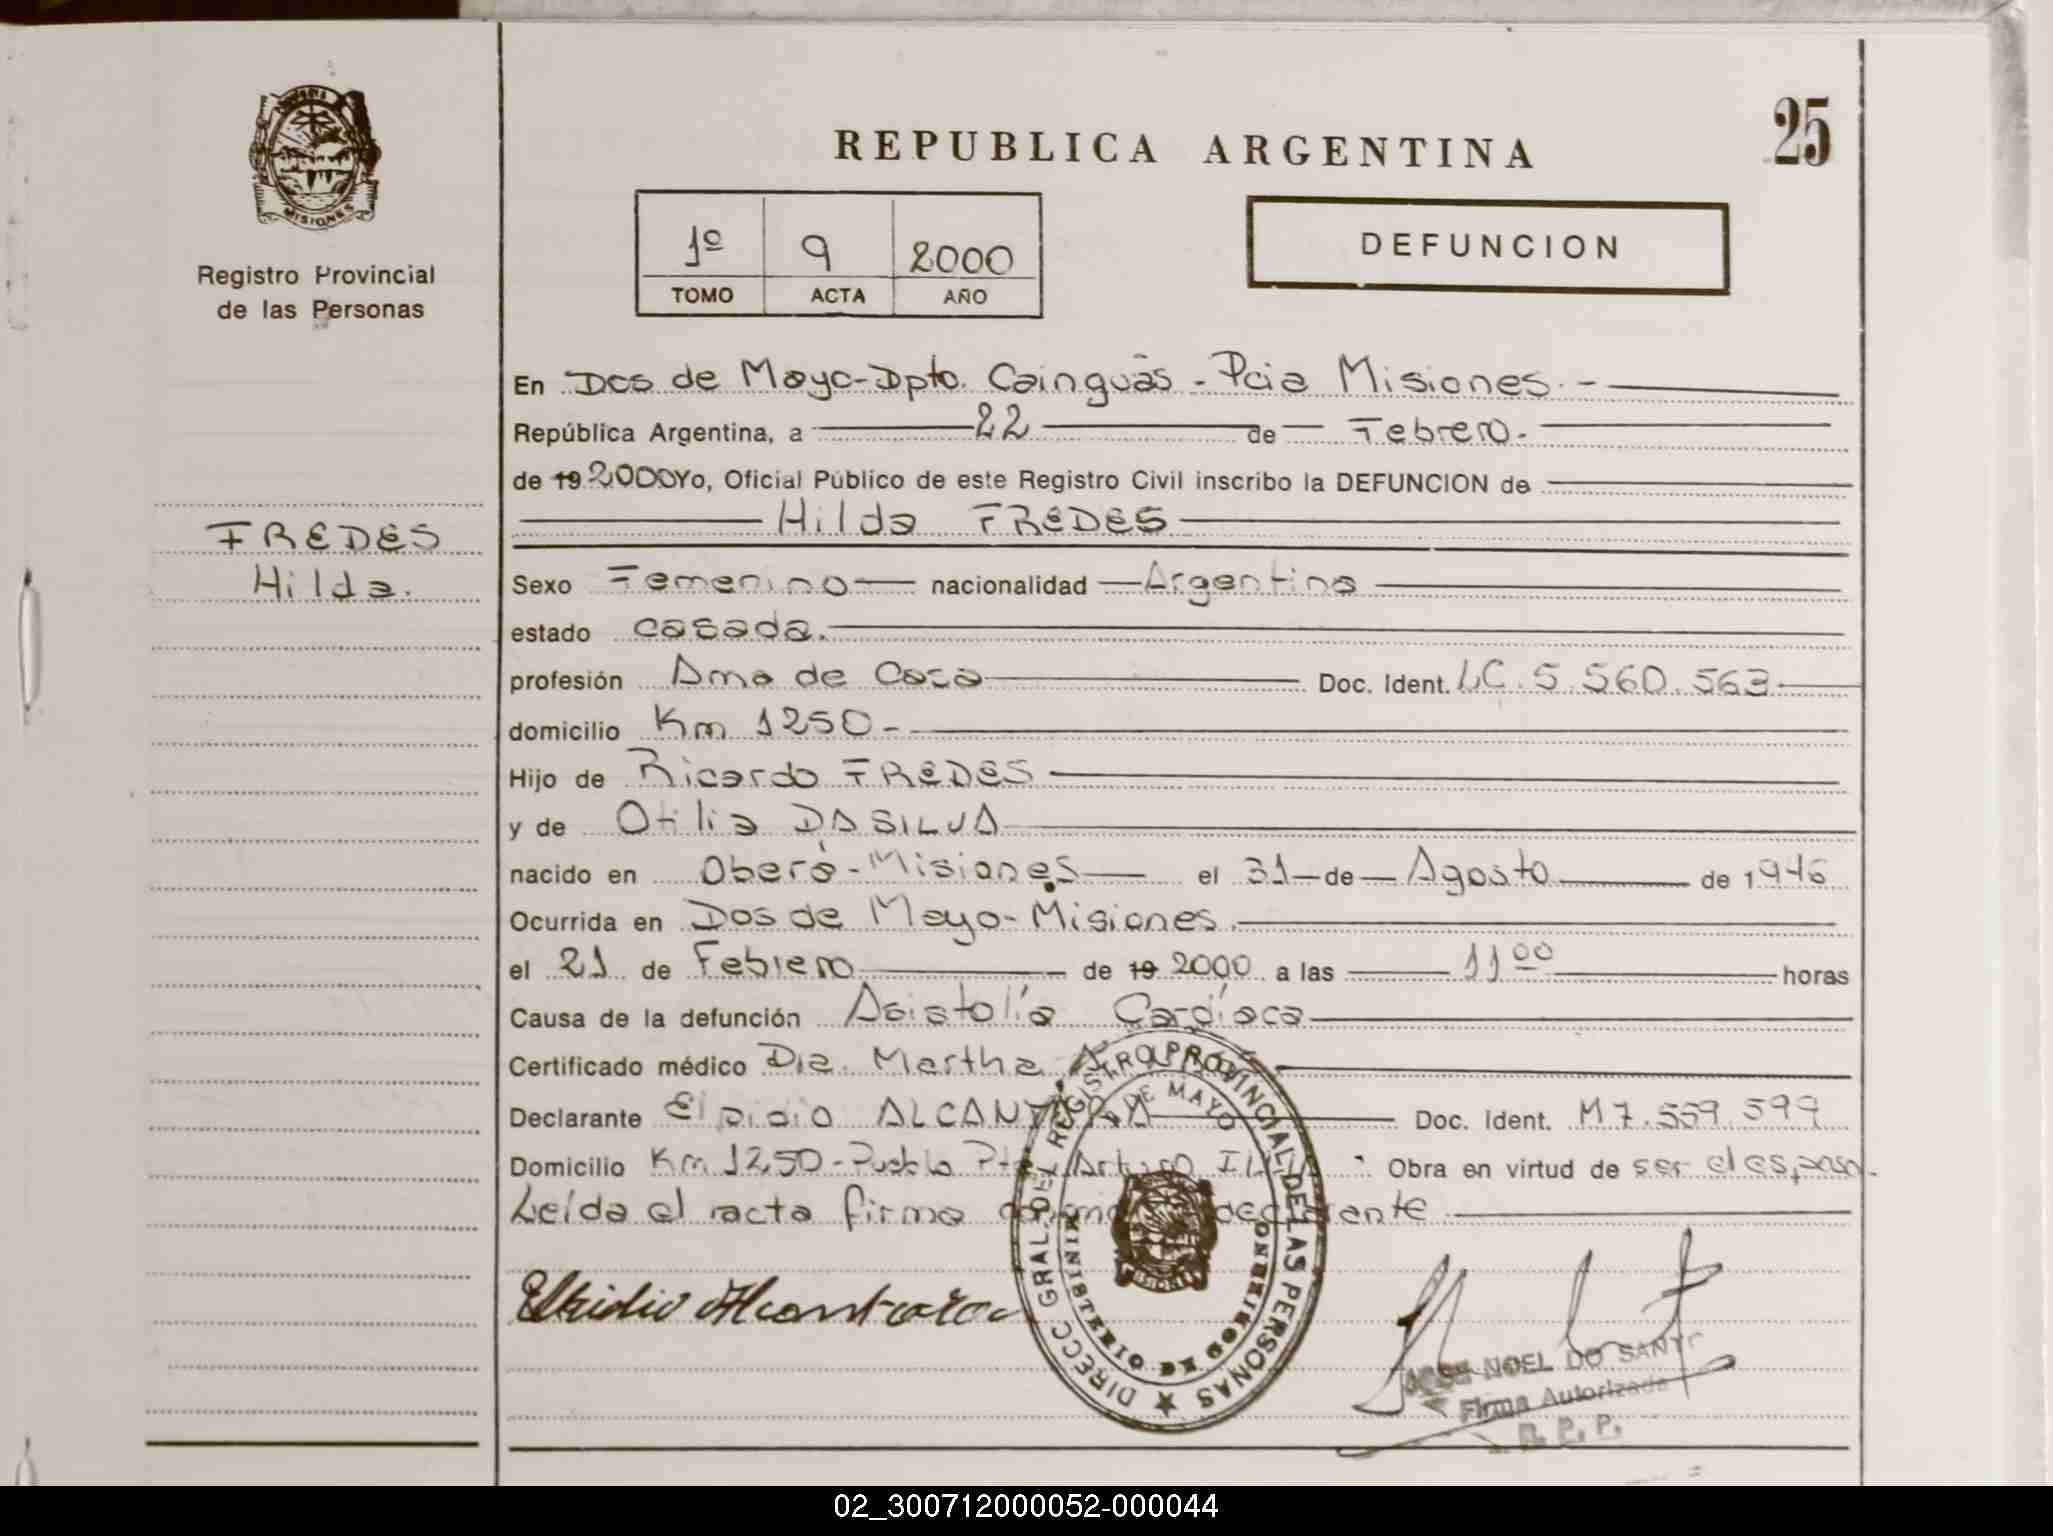 MISIONES
Registro Provincial
de las Personas
FREDES
Hilda.
REPUBLICA ARGENTINA
25
1º 9 2000
TOMO ACTA AÑO
DEFUNCION
En Dos de Mayo-Dpto. Cainguás - Pcia Misiones. -
República Argentina, a 22 de Febrero.
de 19 2000 Yo, Oficial Público de este Registro Civil inscribo la DEFUNCION de
Hilda FREDES
Sexo Femenino nacionalidad Argentina
estado casada.
profesión Ama de Casa Doc. Ident. LC. 5.560.563
domicilio Km 1250-
Hijo de Ricardo FREDES
y de Otilia DASILVA
nacido en Oberá-Misiones el 31 de Agosto de 1946
Ocurrida en Dos de Mayo-Misiones.
el 21 de Febrero de 19 2000 a las 11 00 horas
Causa de la defunción Asistolía Cardíaca
Certificado médico Dra. Martha A.
Declarante Elpidio ALCANTARA Doc. Ident. M 7.559.599
Domicilio Km 1250-Pueblo Pte. Arturo Obra en virtud de ser el esposo.
Leída el acta firma declarante
Elpidio Alcantara
DIRECC GRAL. DEL REGISTRO PROVINCIAL DE LAS PERSONAS
DE MAYO
MINISTERIO DE GOBIERNO
JOSE NOEL DO
Firma Autorizada
R. P. P.
02_300712000052-000044